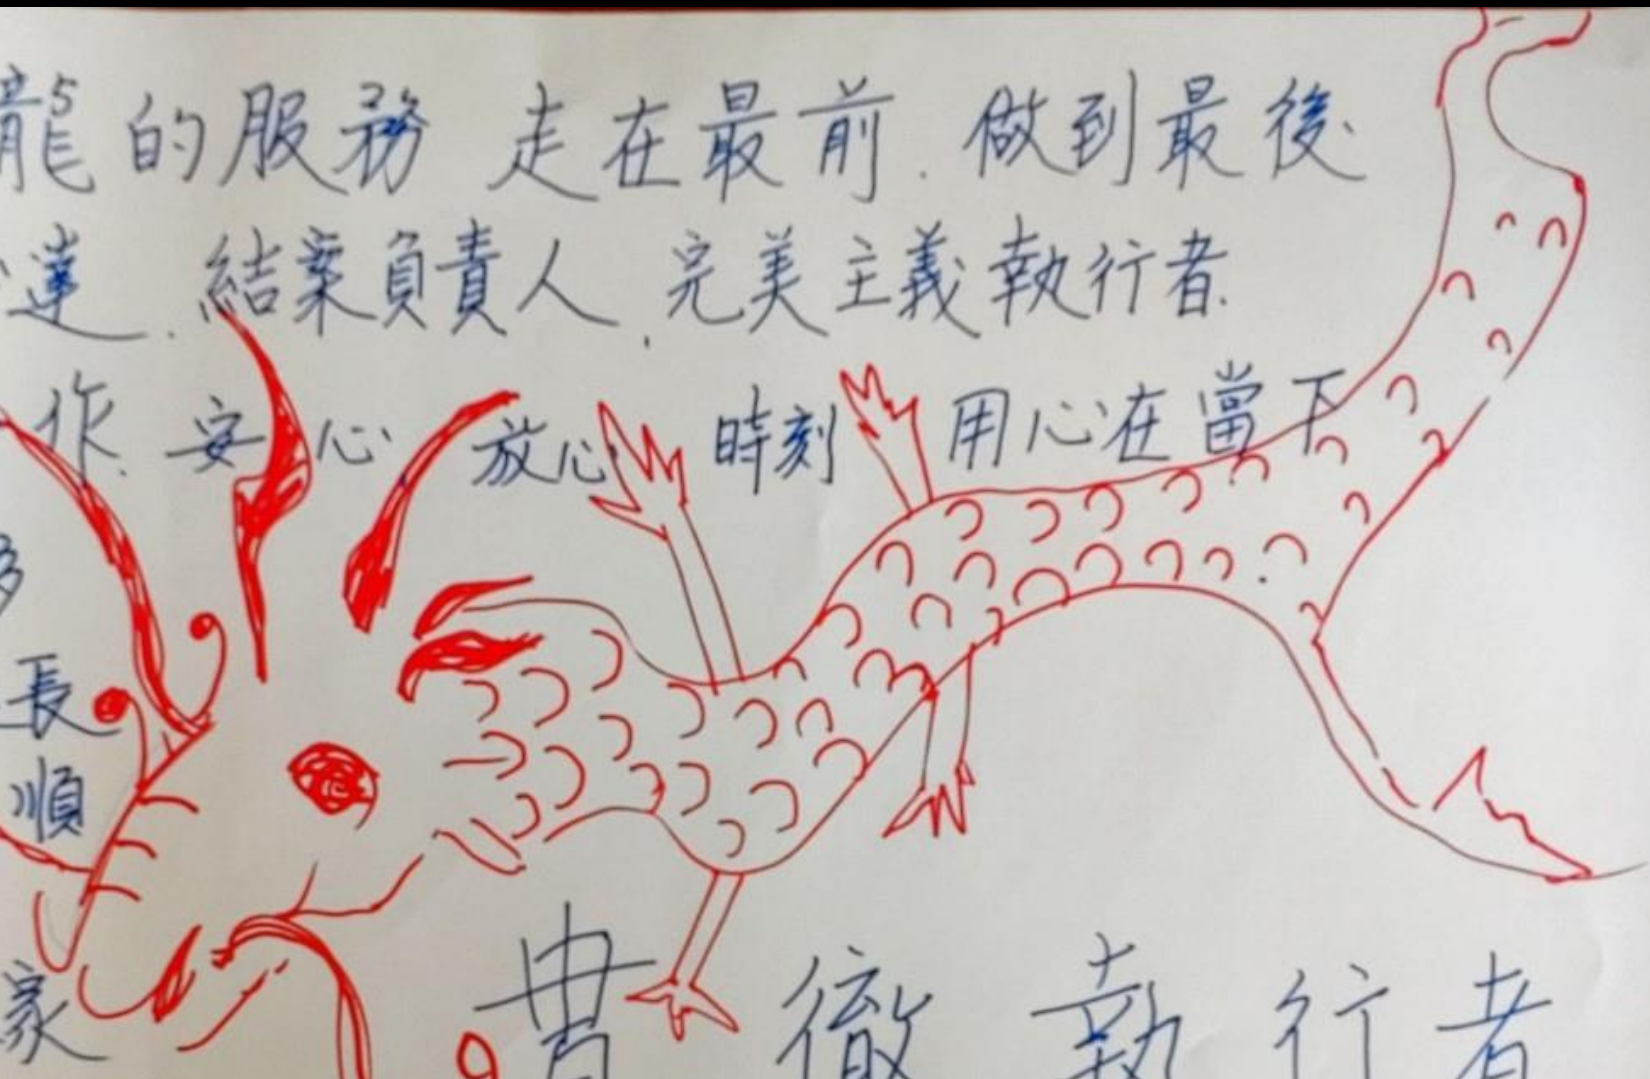 龍的服務 走在最前.做到最後、
達.結案負責人,完美主義執行者.
作.安心 放心 時刻 用心在當下
長
順
家
貫徹執行者